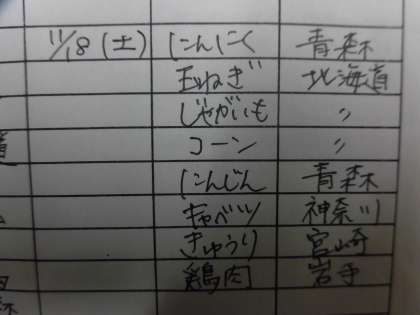 11/18(土) にんにく 青森
玉ねぎ 北海道
じゃがいも 〃
コーン 〃
にんじん 青森
キャベツ 神奈川
きゅうり 宮崎
鶏肉 岩手